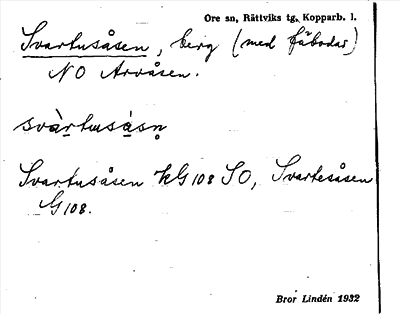 Ore sn, Rättviks tg, Kopparb. l.
Svartusåsen, berg (med fäbodar)
NO Arvåsen.
svàrtusåsn̥
Svartusåsen kG108 SO, Svartesåsen
G108.
Bror Lindén 1932